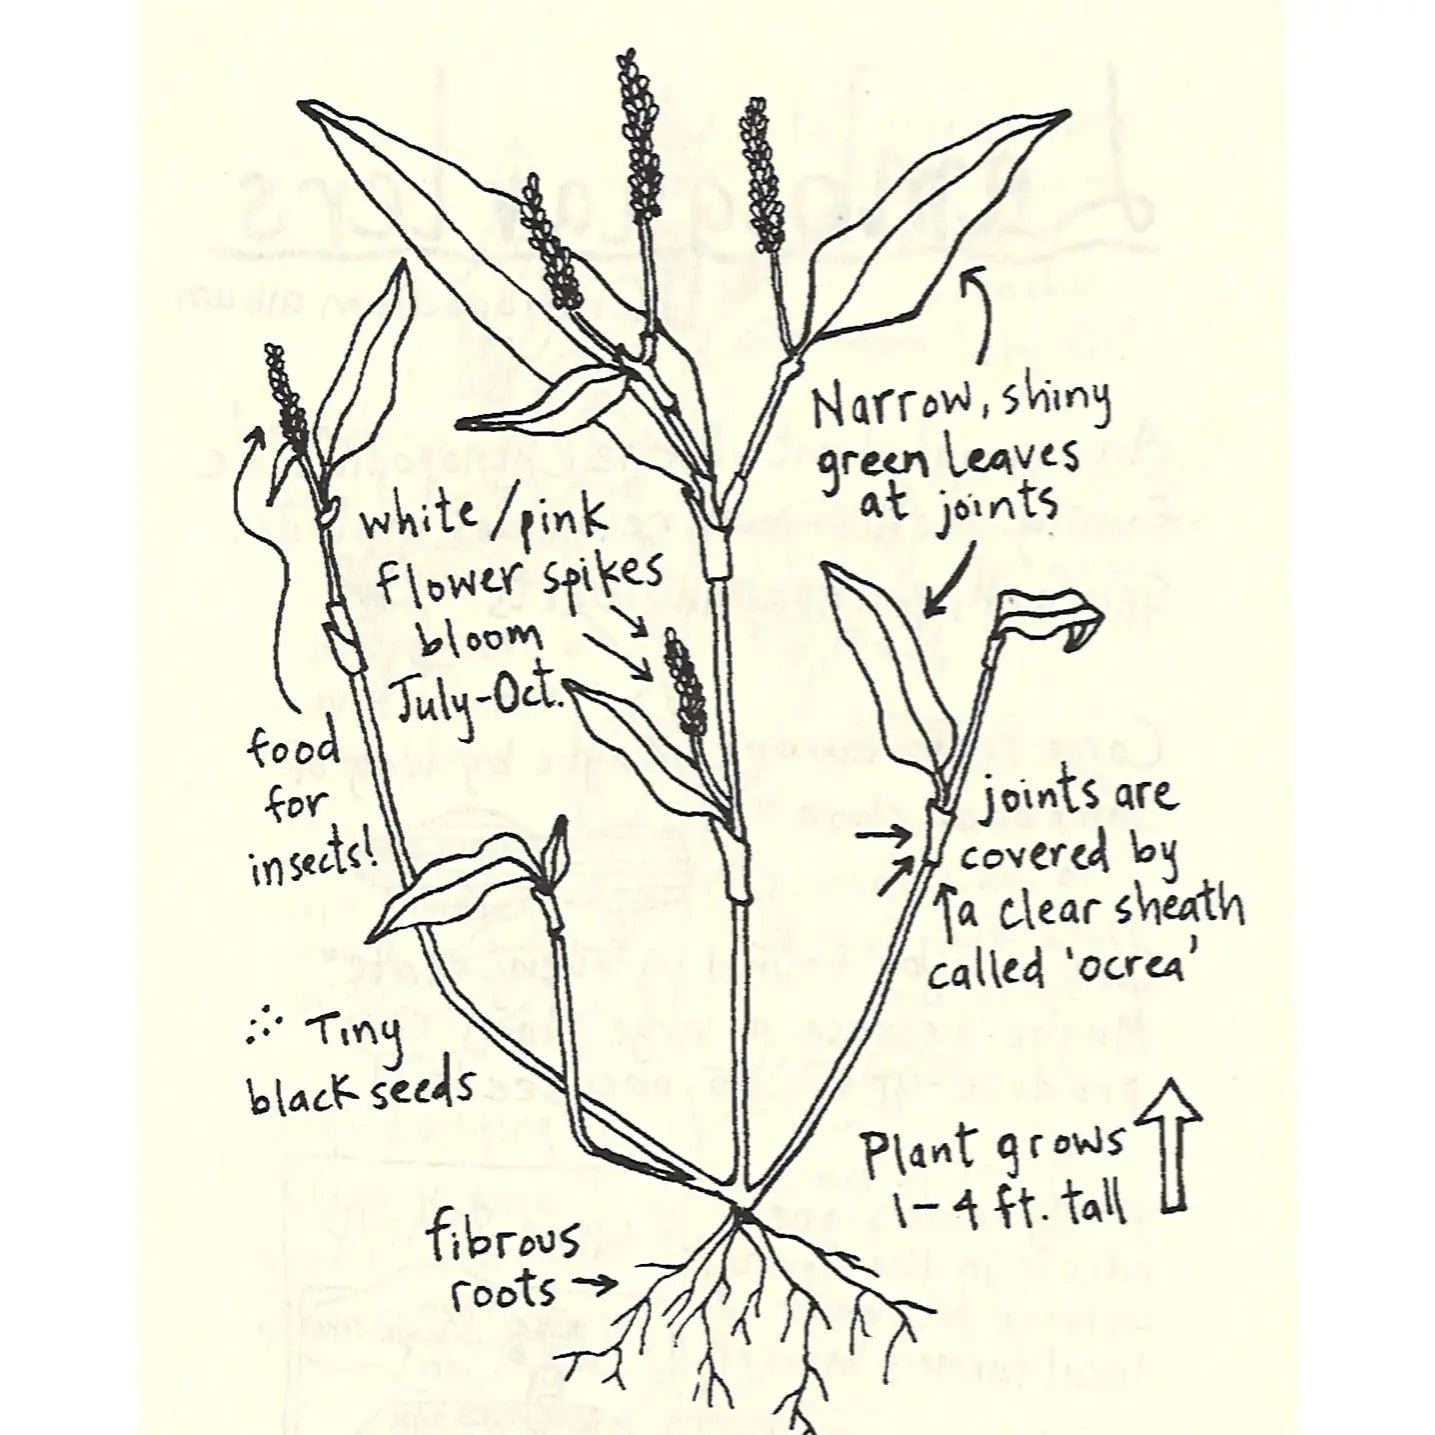 Narrow, shiny
green leaves
at joints
white/pink
flower spikes
bloom
July-Oct.
food
for
insects!
joints are
covered by
a clear sheath
called 'ocrea'
Tiny
black seeds
Plant grows
1-4 ft. tall
fibrous
roots